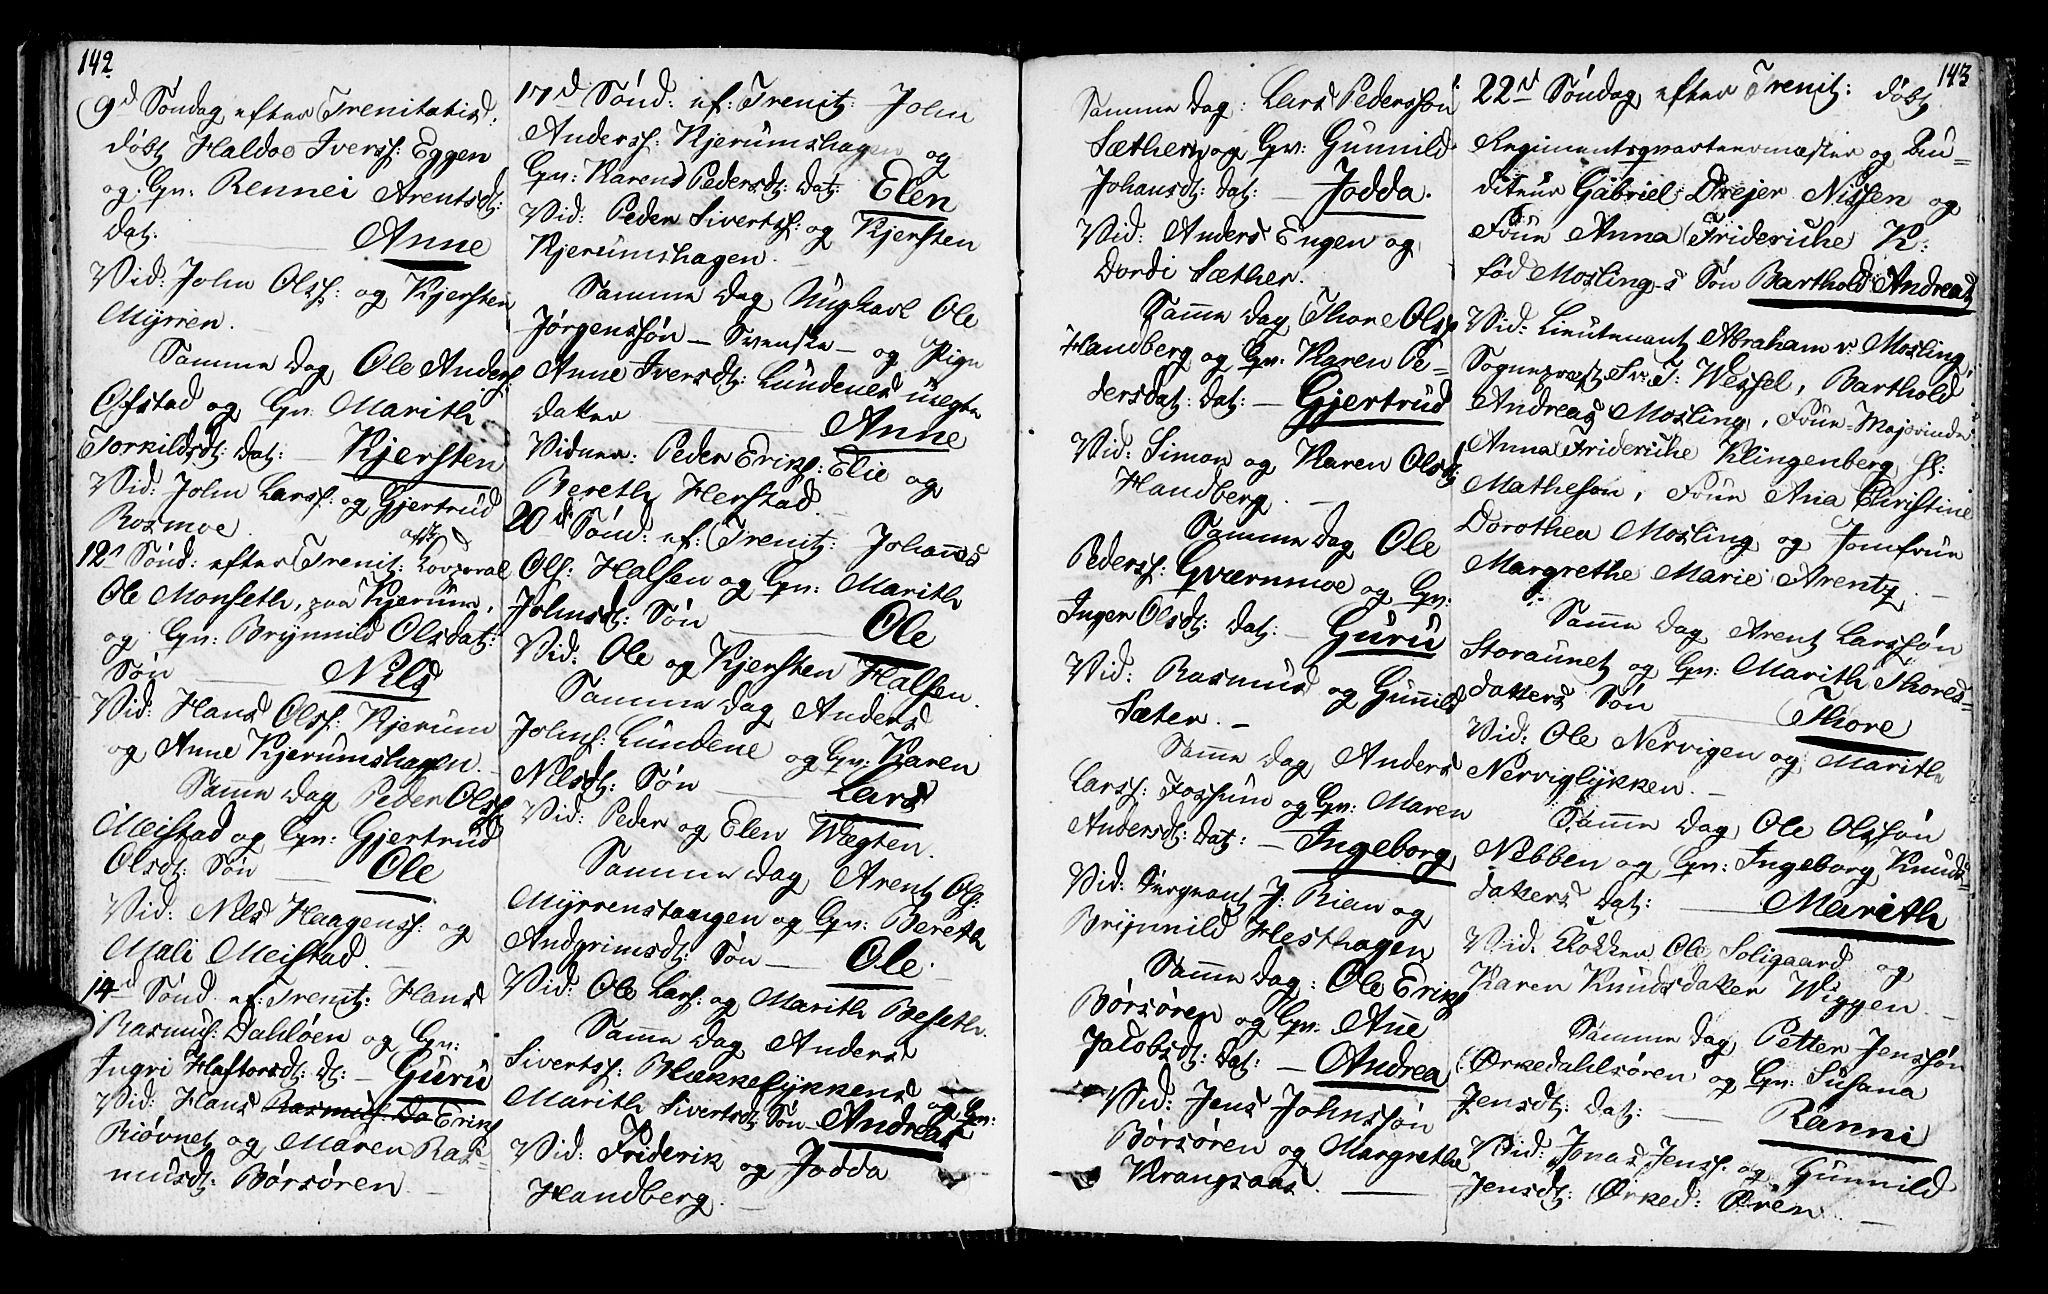 142
9d Søndag efter Trenitatis:
døbt Haldoe Iversf: Eggen
og Gv: Rennei Arentsdt:
Dat: Anne
Vid: John Olsf: og Kjersten
Myrren.
Samme Dag Ole Andersf:
Ofstad og Gv: Marith
Torkildsdt: Dat: Kjersten
Vid: John Larsf: og Gjertrud
Rosmoe
12t Sønd: efter Trenit: Korporal
Ole Monseth, paa Kjerum,
og Gv: Brynnild Olsdat:
Søn Nils
Vid: Hans Olsf: Kjerum
og Anne Kjerumshagen.
Samme Dag Peder Olsf:
Meistad og Gv: Gjertrud
Olsdt: Søn Ole
Vid: Nils Haagensf: og
Mali Meistad.
14d Sønd. ef: Trenit: Hans
Rasmusf: Dahløen og Gv:
Ingri Haftorsdt: Dt: Guru
Vid: Hans Rasmusf: Da Erikf
Riøvnet og Maren Ras=
musdt: Børsøren
17d Sønd: ef: Trenit: John
Andersf: Kjerumshagen og
Gv: Karen Pedersdt: Dat: Elen
Vid: Peder Sivertsf: og Kjersten
Kjerumshagen.
Samme Dag Ungkarl Ole
Jørgenssøn – Svenske – og Pige
Anne Iversdt: Lundenes uægte
Datter Anne
Vidner: Peder Eriksf: Elie og
Bereth Herstad.
20de Sønd: ef: Trenit: Johannes
Olsf: Halsen og Gv: Marith
Johnsdt: Søn Ole
Vid: Ole og Kjersten Halsen.
Samme Dag Anders
Johnsf: Lundene og Gv: Karen
Nilsdt: Søn Lars
Vid: Peder og Elen Wægten.
Samme Dag Arent Olsf:
Myrrenstangen og Gv: Bereth
Andgrimsdt: Søn Ole
Vid: Ole Larsf: og Marith Beseth.
Samme Dag Anders
Sivertsf: Blekkelykkens og Gv:
Marith Sivertsdt: Søn Andreas
Vid: Friderik og Jodda
Handberg.
143
Samme Dag: Lars Pederssøn
Sæther og Gv: Gunnild
Johansdt: Dat: Jodda.
Vid: Anders Engen og
Dordi Sæther.
Samme Dag Thore Olsf
Handberg og Gv: Karen Pe=
dersdat: Dat: Gjertrud
Vid: Simon og Karen Olsdt:
Handberg.
Samme Dag Ole
Pedersf: Gværnmoe og Gv:
Inger Olsdt: Dat: Guru
Vid: Rasmus og Gunnild
Sæter.
Samme Dag Anders
Larsf: Fossum og Gv: Maren
Andersdt: Dat: Ingeborg
Vid: Sergeant J: Rian og
Brynnild Hesthagen
Samme Dag: Ole Erikf
Børsøren og Gv: Anne
Jacobsdt: Dat: Andrea
Vid: Jens Johnssøn
Børsøren og Margrethe
Krangsaas.
22d Søndag efter Trenit: døbt
Regimentsqvarteermester og Au=
diteur Gabriel Drejer Nissen og
Frue Anna Friderikke K:
fød Mosling-s Søn Barthold Andreas
Vid: Lieutenant Abraham v: Mosling,
Sognepræst Fr: T: Wessel, Barthold
Andreas Mosling, Frue Majorinde
Anna Friderikke Klingenberg Sl:
Matheson, Frue Ana Christine
Dorothea Mosling og Jomfrue
Margrethe Marie Arentz.
Samme Dag Arent Larssøn
Storaunet og Gv: Marith Thores=
datters Søn Thore
Vid: Ole Nervigen og Marith
Nerviglykken.
Samme Dag Ole Olssøn
Nebben og Gv: Ingeborg Knuds=
datters Dat: Marith
Vid: Klokker Ole Soligaard og
Karen Knudsdatter Wiggen.
Samme Dag Petter Jenssøn
Ørkedahlsøren og Gv: Susana
Jensdt: Dat: Ranni
Vid: Jonas Jensf: og Gunnild
Jensdt: Ørked: Øren.